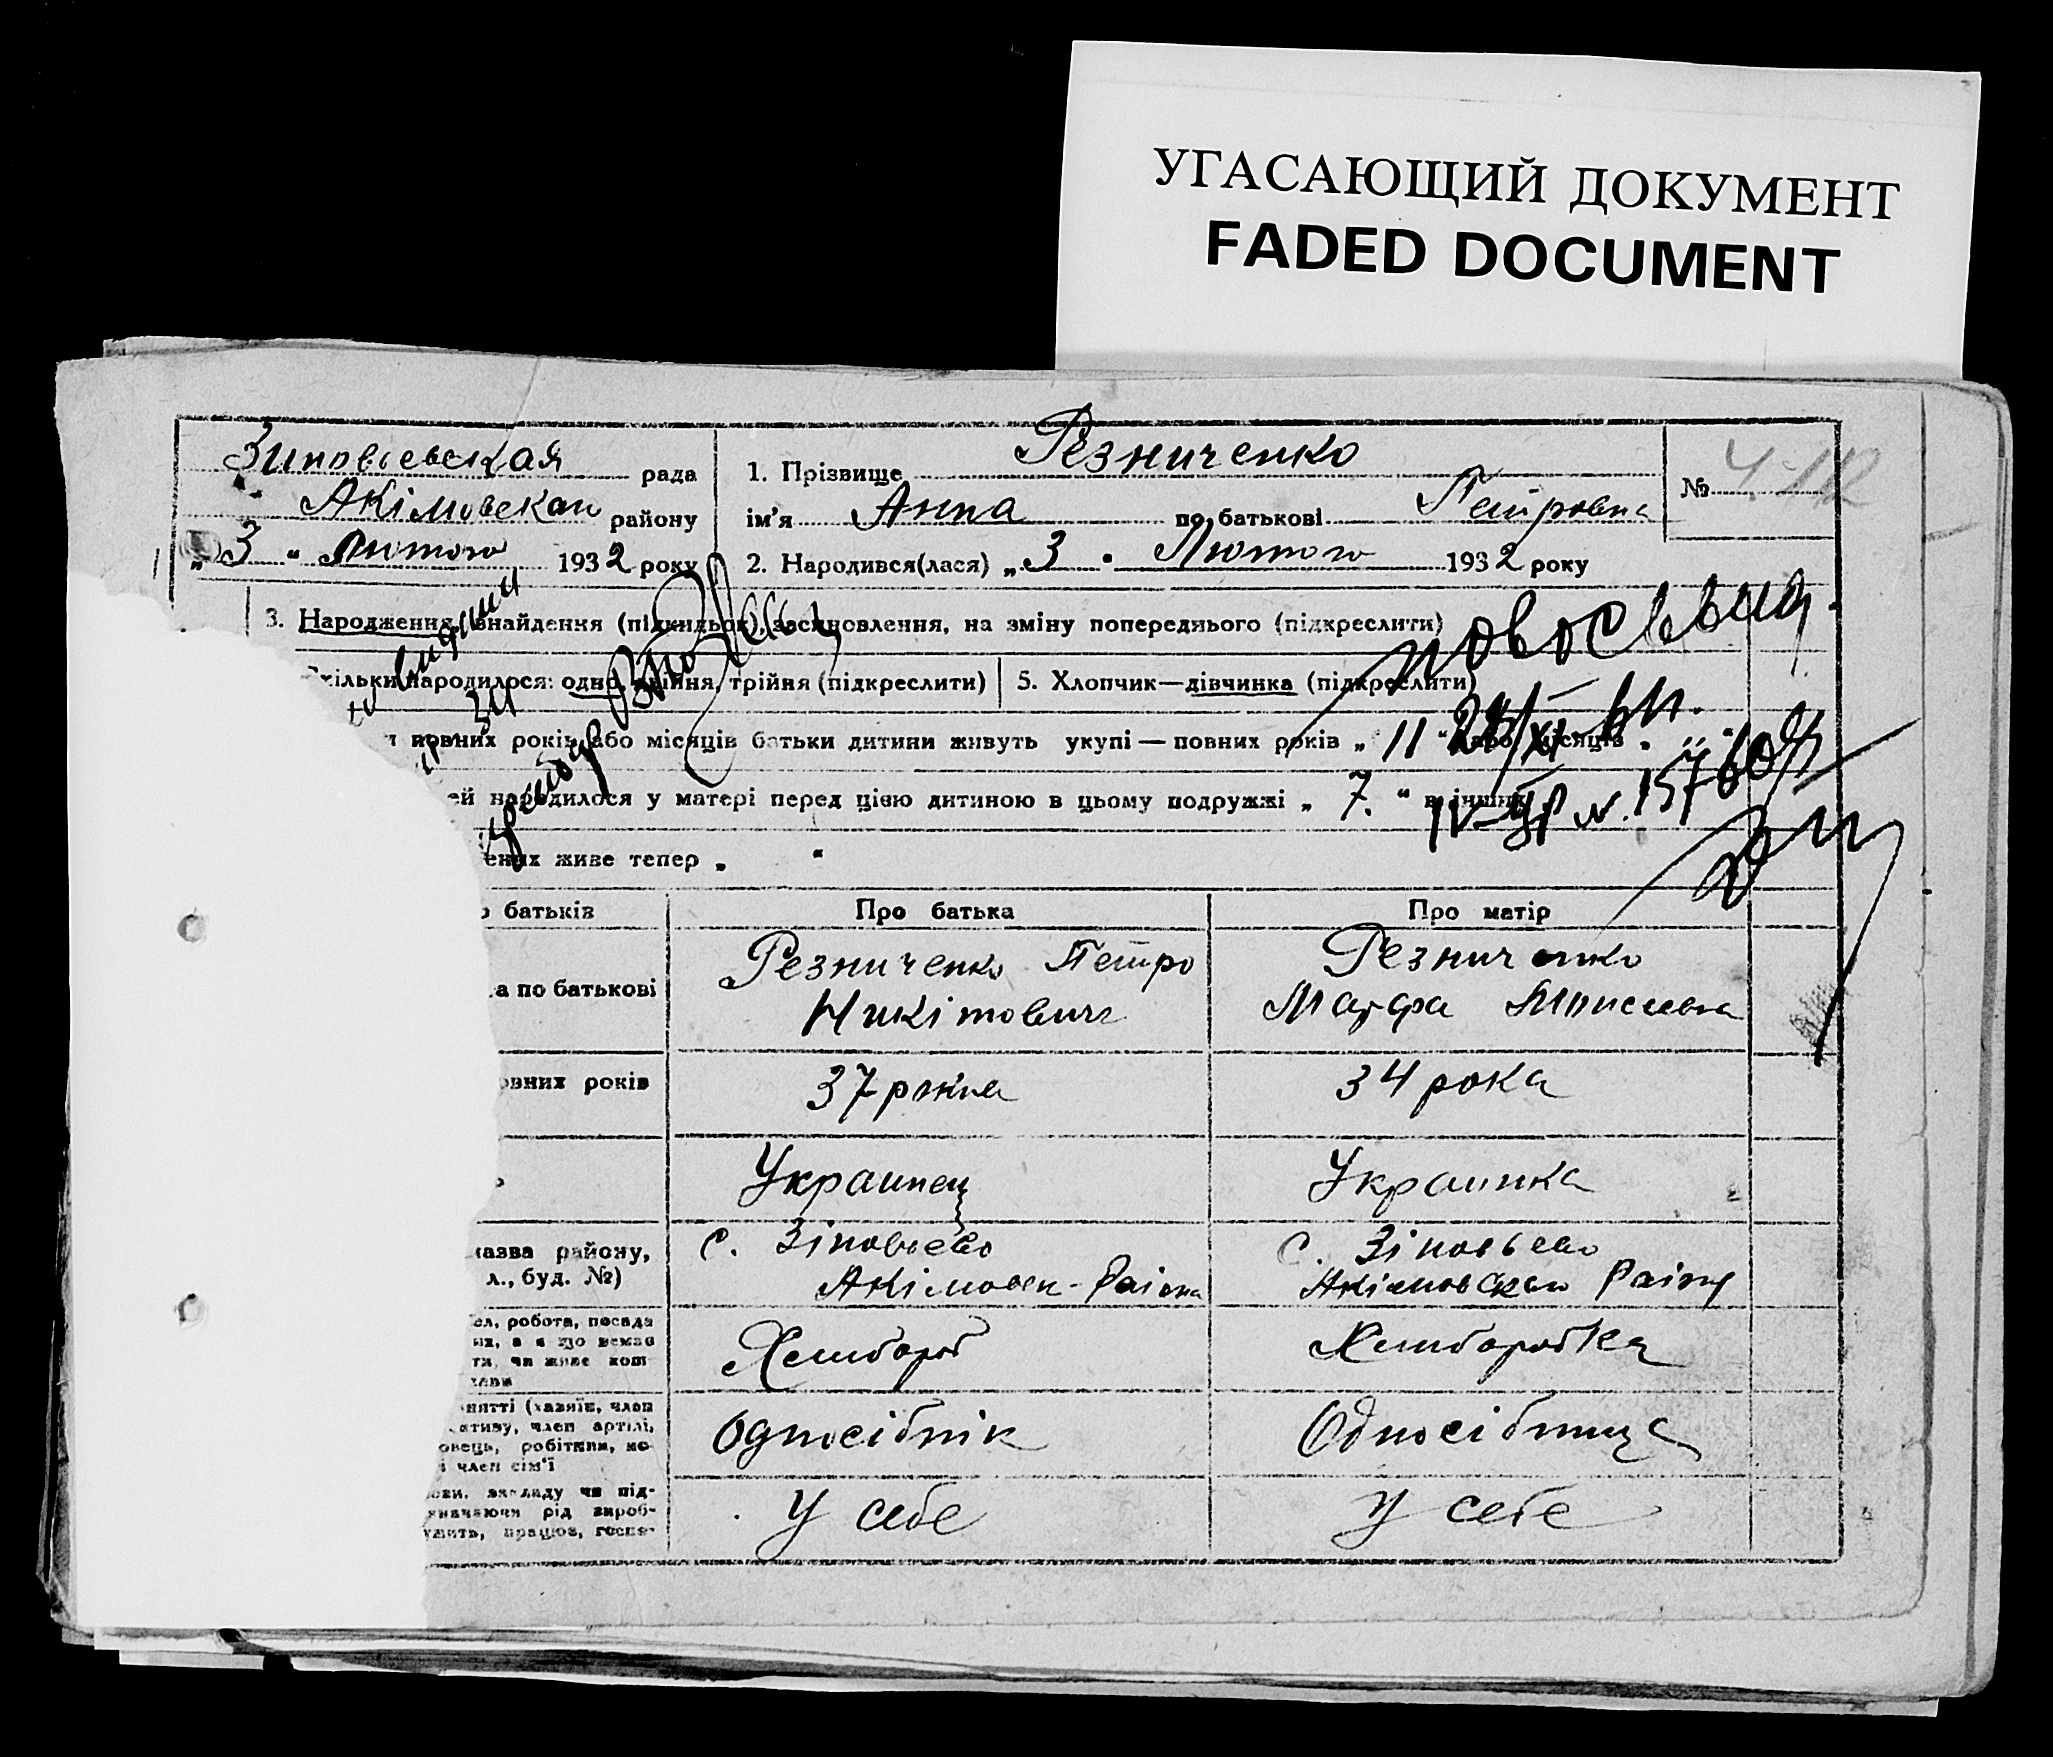 УГАСАЮЩИЙ ДОКУМЕНТ
FADED DOCUMENT
Зиновьевская рада
Акімовскаи району
„3“ Лютого 1932 року
1. Прізвище Резниченко
ім'я Анна по батькові Петровна
№
2. Народився(лася) „3 Лютого 1932 року
3. Народження, знайдення (підкидьок), засиновлення, на зміну попереднього (підкреслити)
Скільки народилося: одно, двійня, трійня (підкреслити)
5. Хлопчик—дівчинка (підкреслити)
повних років або місяців батьки дитини живуть укупі — повних років „ 11 “ або місяців „
ей народилося у матері перед цією дитиною в цьому подружжі „ 7. “ в інших
ених живе тепер „ “
новосвид.
IV-УР № 157607
батьків
Про батька
Про матір
а по батькові
Резниченко Петро
Никітович
Резниченко
Марфа Моисеевна
овних років
37 рокив
34 рока
Украинец
Украинка
азва району,
л., буд. №)
с. Зіновьево
Акімовск-Раіона
с. Зіновьево
Акімовскаи Раіону
ел, робота, посада
их, а я що немає
ти, чи живе кош
Хлибороб
Хлиборобка
нятті (хазяїн, член
ативу, член артілі,
овець, робітник,
член сім'ї
Односібнік
Односібница
ови, закладу чи під-
значаючи рід вироб-
ужить, працює, госпо-
У себе
У себе